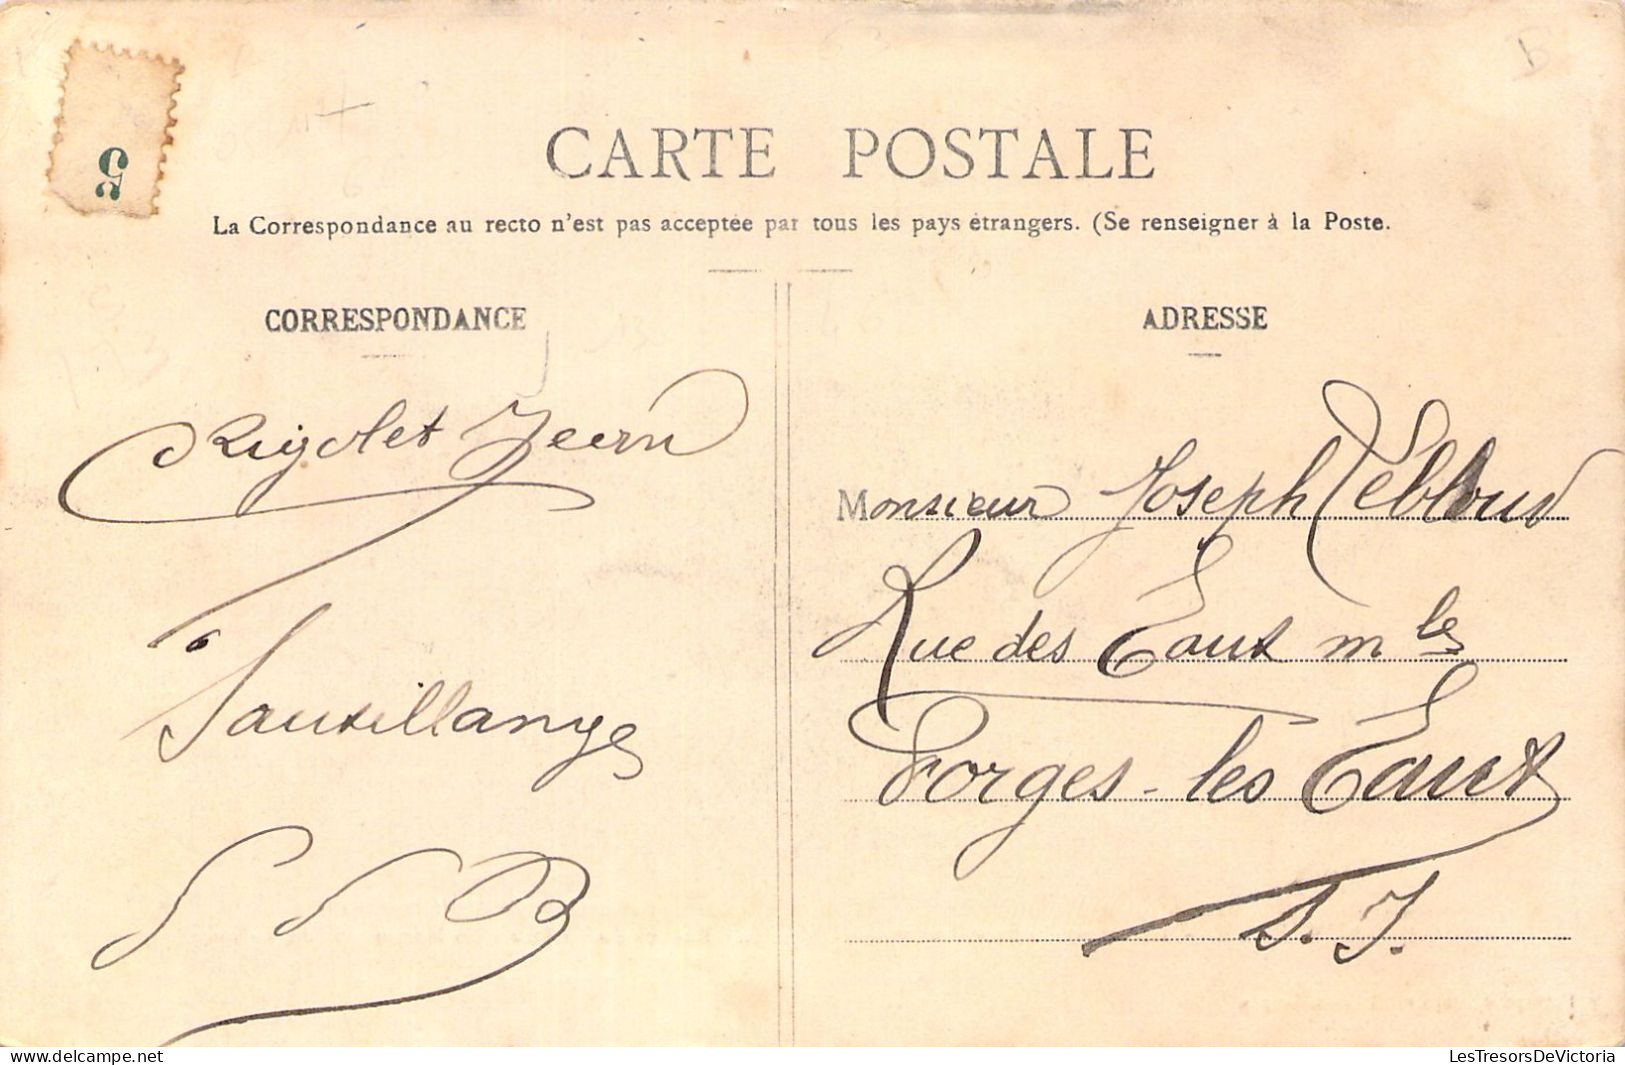 5
CARTE POSTALE
La Correspondance au recto n'est pas acceptée par tous les pays étrangers. (Se renseigner à la Poste.
CORRESPONDANCE
Rigolet Jean
Sauxillanges
ADRESSE
Monsieur Joseph Leblond
Rue des Eaux mles
Forges-les Eaux
S. I.
LesTresorsDeVictoria.com
© www.delcampe.net
LesTresorsDeVictoria